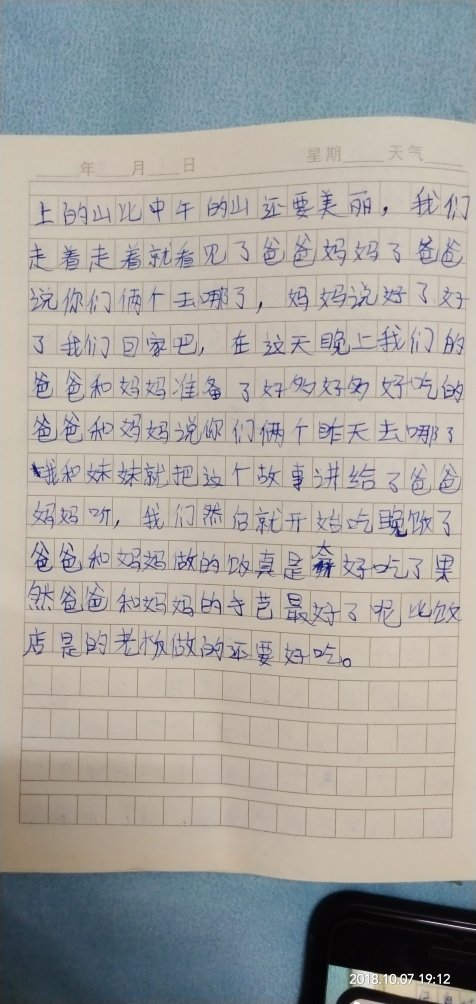 年 月 日 星期 天气
上的山比中午的山还要美丽，我们
走着走着就看见了爸爸妈妈了爸爸
说你们俩个去哪了，妈妈说好了好
了我们回家吧，在这天晚上我们的
爸爸和妈妈准备了好多好多好吃的
爸爸和妈妈说你们俩个昨天去哪了
我和妹妹就把这个故事讲给了爸爸
妈妈听，我们然后就开始吃晚饭了
爸爸和妈妈做的饭真是太好吃了果
然爸爸和妈妈的手艺最好了呢比饭
店是的老板做的还要好吃。
2018.10.07 19:12